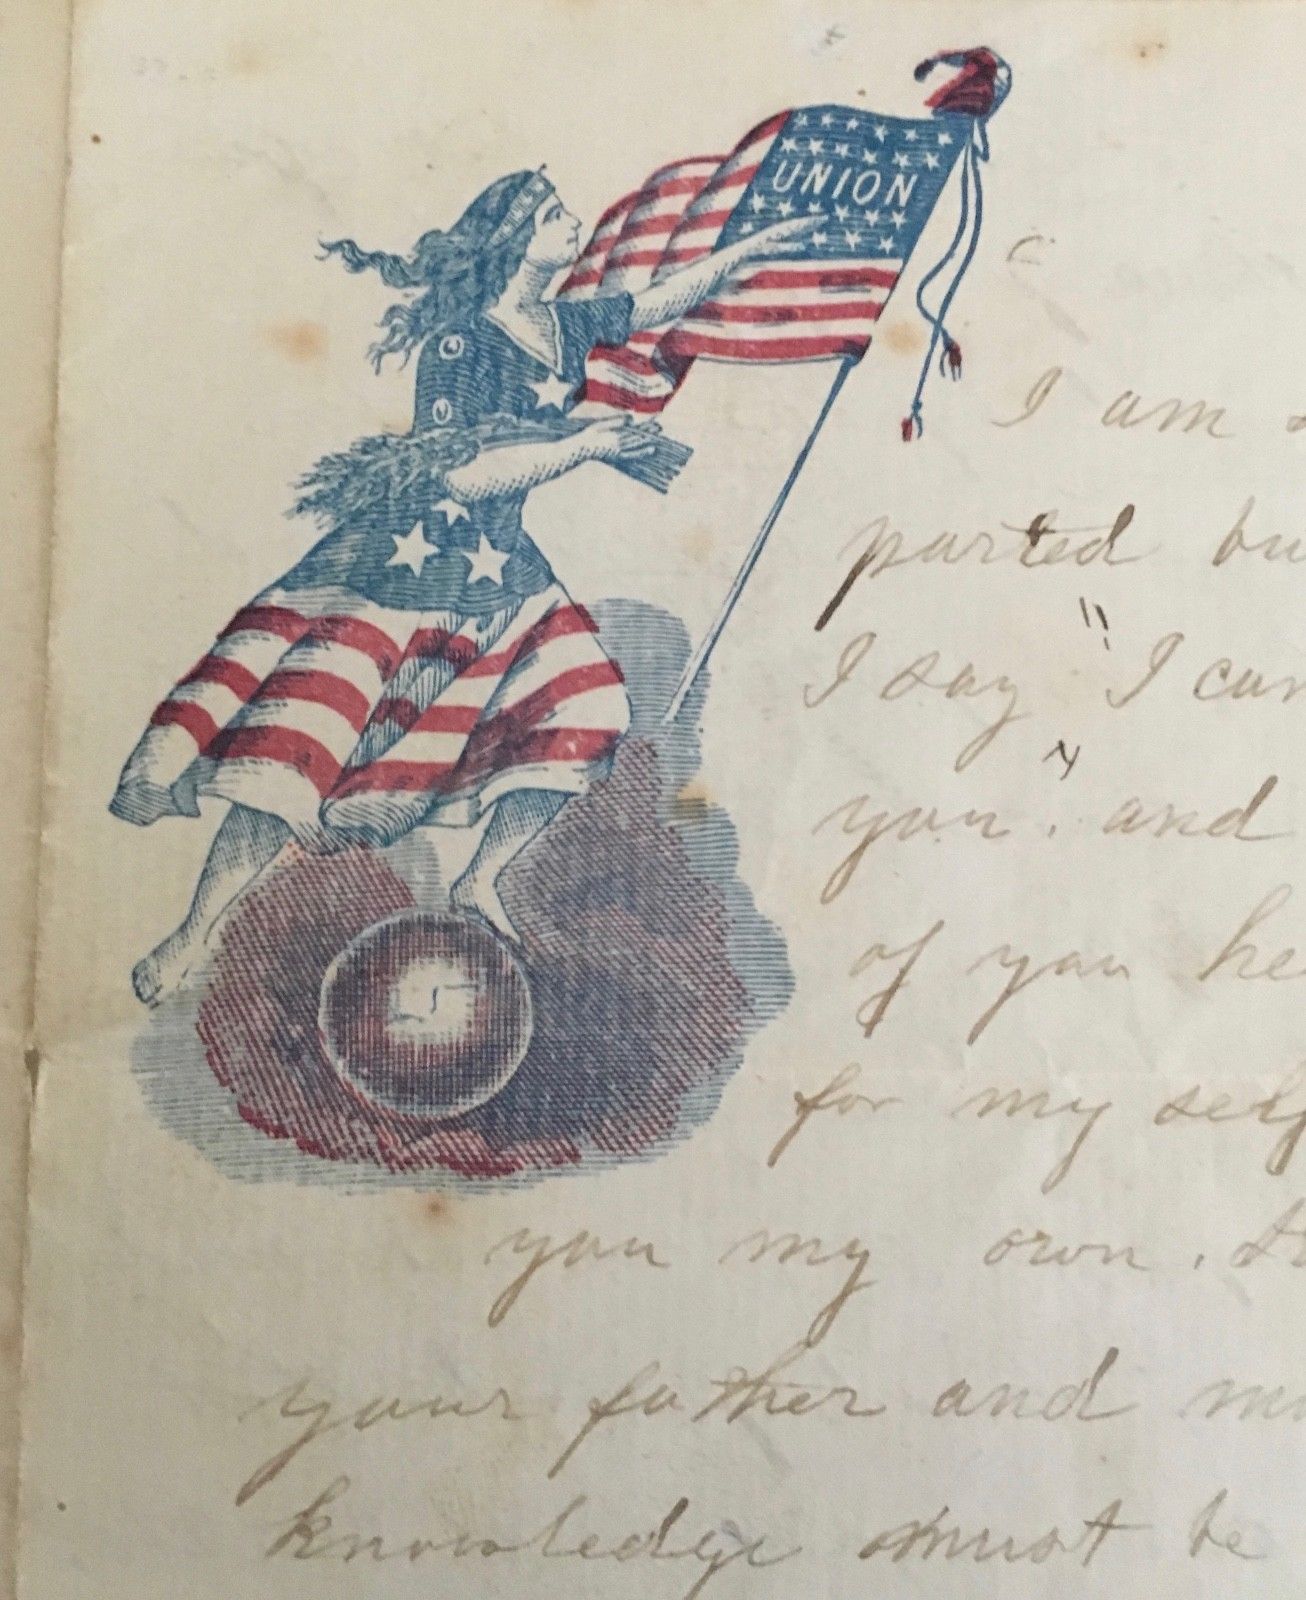 UNION
I am
parted
I say "I can
you". and
of you he
for my self
you my own.
your father and
knowledge must be